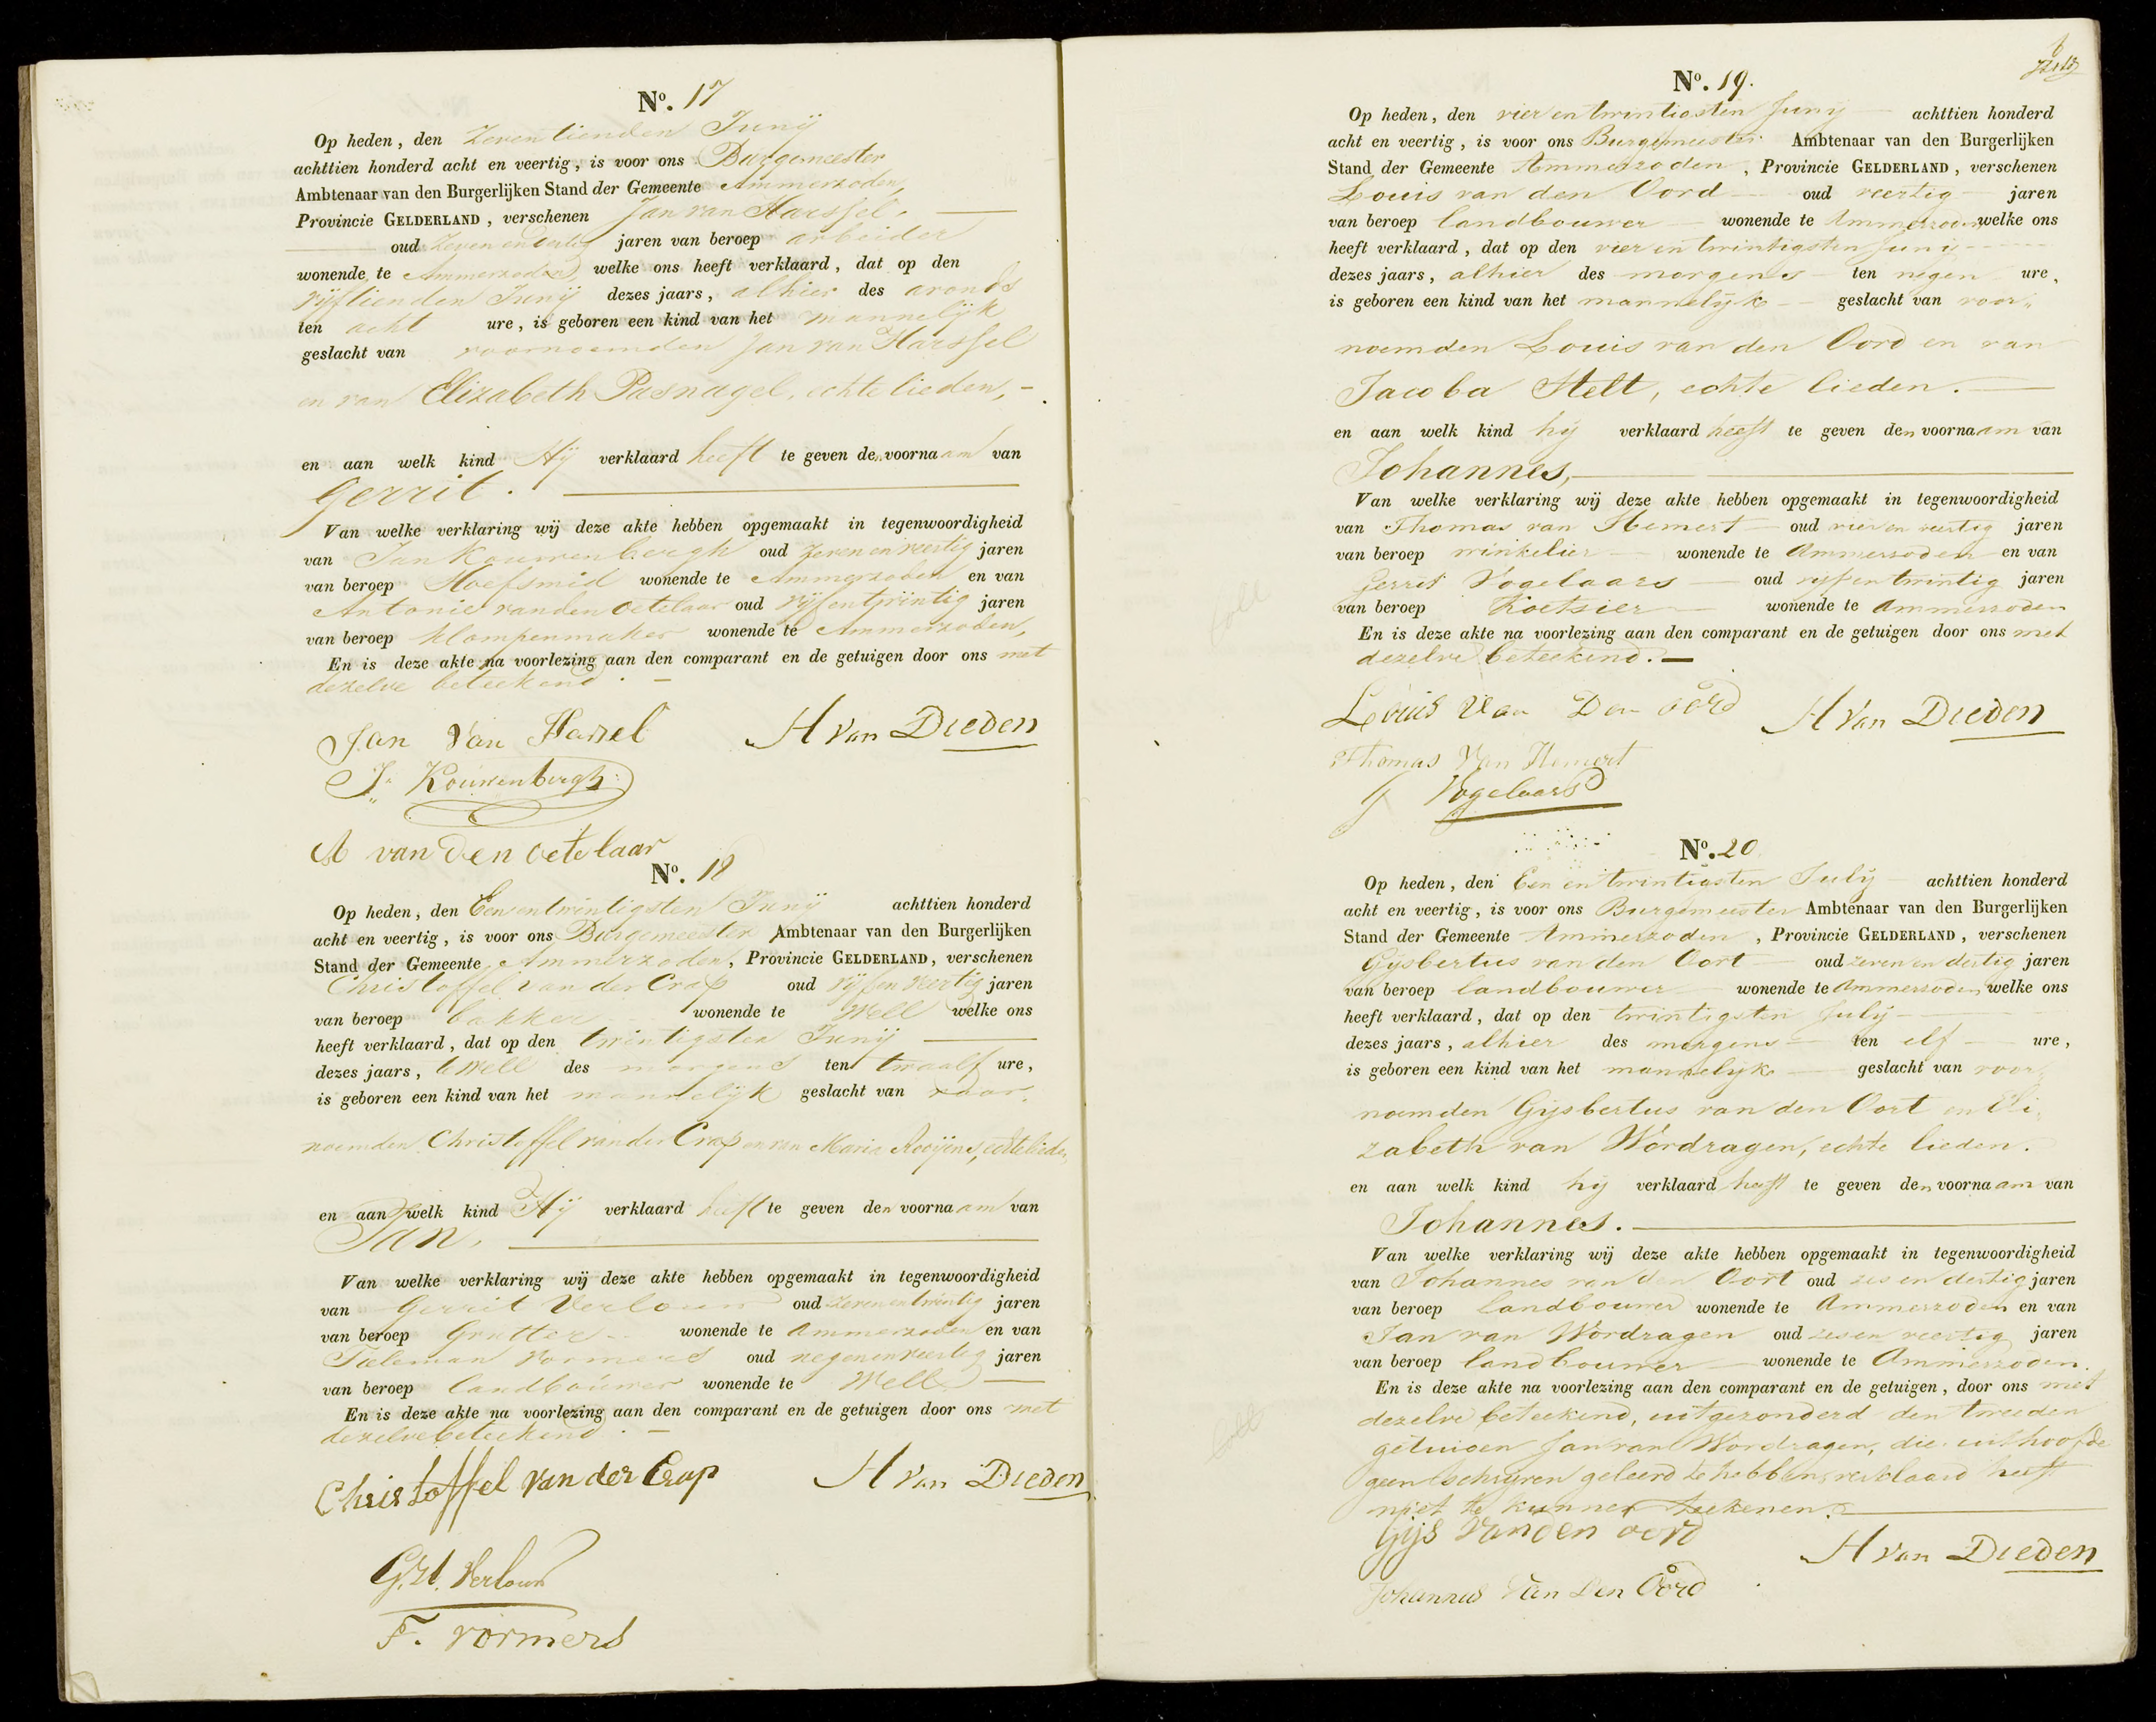 Nº. 17
Op heden, den Zeventienden Junij
achttien honderd acht en veertig, is voor ons Burgemeester
Ambtenaar van den Burgerlijken Stand der Gemeente Ammerzoden,
Provincie GELDERLAND, verschenen Jan van Harssel,
oud Zeven en dertig jaren van beroep arbeider
wonende te Ammerzoden, welke ons heeft verklaard, dat op den
vijftienden Junij dezes jaars, alhier des avonds
ten acht ure, is geboren een kind van het mannelijk
geslacht van voornoemden Jan van Harssel
en van Elizabeth Pasnagel, echte lieden, -
en aan welk kind Hij verklaard heeft te geven den voornaam van
Gerrit.
Van welke verklaring wij deze akte hebben opgemaakt in tegenwoordigheid
van Jan Kouwenbergh oud zeven en veertig jaren
van beroep Hoefsmid wonende te Ammerzoden en van
Antonie van den Oetelaar oud vijf en twintig jaren
van beroep klompenmaker wonende te Ammerzoden,
En is deze akte na voorlezing aan den comparant en de getuigen door ons met
dezelve beteekend. -
Jan Van Hassel H Van Dieden
J. Kouwenbergh
A van den oetelaar
Nº. 18
Op heden, den Een en twintigsten Junij achttien honderd
acht en veertig, is voor ons Burgemeester Ambtenaar van den Burgerlijken
Stand der Gemeente Ammerzoden, Provincie GELDERLAND, verschenen
Christoffel van der Crap oud vijf en veertig jaren
van beroep bakker wonende te Well welke ons
heeft verklaard, dat op den twintigsten Junij
dezes jaars, te Well des morgens ten twaalf ure,
is geboren een kind van het mannelijk geslacht van voor-
noemden Christoffel van der Crap en van Maria Rooijens, echte lieden,
en aan welk kind Hij verklaard heeft te geven den voornaam van
Jan.
Van welke verklaring wij deze akte hebben opgemaakt in tegenwoordigheid
van Gerrit Verlouw oud zeven en twintig jaren
van beroep Grutter wonende te Ammerzoden en van
Tieleman Vormers oud negen en veertig jaren
van beroep landbouwer wonende te Well
En is deze akte na voorlezing aan den comparant en de getuigen door ons met
dezelve beteekend. -
Christoffel van der Crap H Van Dieden
G.rt. Verlouw
T. vormers
Nº. 19.
Op heden, den vier en twintigsten Junij achttien honderd
acht en veertig, is voor ons Burgemeester Ambtenaar van den Burgerlijken
Stand der Gemeente Ammerzoden, Provincie GELDERLAND, verschenen
Louis van den Oord oud veertig jaren
van beroep landbouwer wonende te Ammerzoden, welke ons
heeft verklaard, dat op den vier en twintigsten Junij
dezes jaars, alhier des morgens ten negen ure,
is geboren een kind van het mannelijk geslacht van voor-
noemden Louis van den Oord en van
Jacoba Stelt, echte lieden.
en aan welk kind hij verklaard heeft te geven den voornaam van
Johannes,
Van welke verklaring wij deze akte hebben opgemaakt in tegenwoordigheid
van Thomas van Hemert oud vier en veertig jaren
van beroep winkelier wonende te Ammerzoden en van
Gerrit Vogelaars oud vijf en twintig jaren
van beroep Koetsier wonende te Ammerzoden
En is deze akte na voorlezing aan den comparant en de getuigen door ons met
dezelve beteekend. -
Louis Van Den oord H Van Dieden
Thomas Van Hemert
G Vogelaars
Nº. 20
Op heden, den Een en twintigsten Julij achttien honderd
acht en veertig, is voor ons Burgemeester Ambtenaar van den Burgerlijken
Stand der Gemeente Ammerzoden, Provincie GELDERLAND, verschenen
Gijsbertus van den Oort oud zeven en dertig jaren
van beroep landbouwer wonende te Ammerzoden, welke ons
heeft verklaard, dat op den twintigsten Julij
dezes jaars, alhier des morgens ten elf ure,
is geboren een kind van het mannelijk geslacht van voor-
noemden Gijsbertus van den Oort en Eli-
zabeth van Wordragen, echte lieden.
en aan welk kind hij verklaard heeft te geven den voornaam van
Johannes.
Van welke verklaring wij deze akte hebben opgemaakt in tegenwoordigheid
van Johannes van den Oort oud zes en dertig jaren
van beroep landbouwer wonende te Ammerzoden en van
Jan van Wordragen oud zes en veertig jaren
van beroep landbouwer wonende te Ammerzoden.
En is deze akte na voorlezing aan den comparant en de getuigen, door ons met
dezelve beteekend, uitgezonderd den tweeden
getuigen Jan van Wordragen, die uithoofde
geen schrijven geleerd te hebben, verklaard heeft
niet te kunnen teekenen.
Gijs Van den oord H Van Dieden
Johannes Van Den Oord